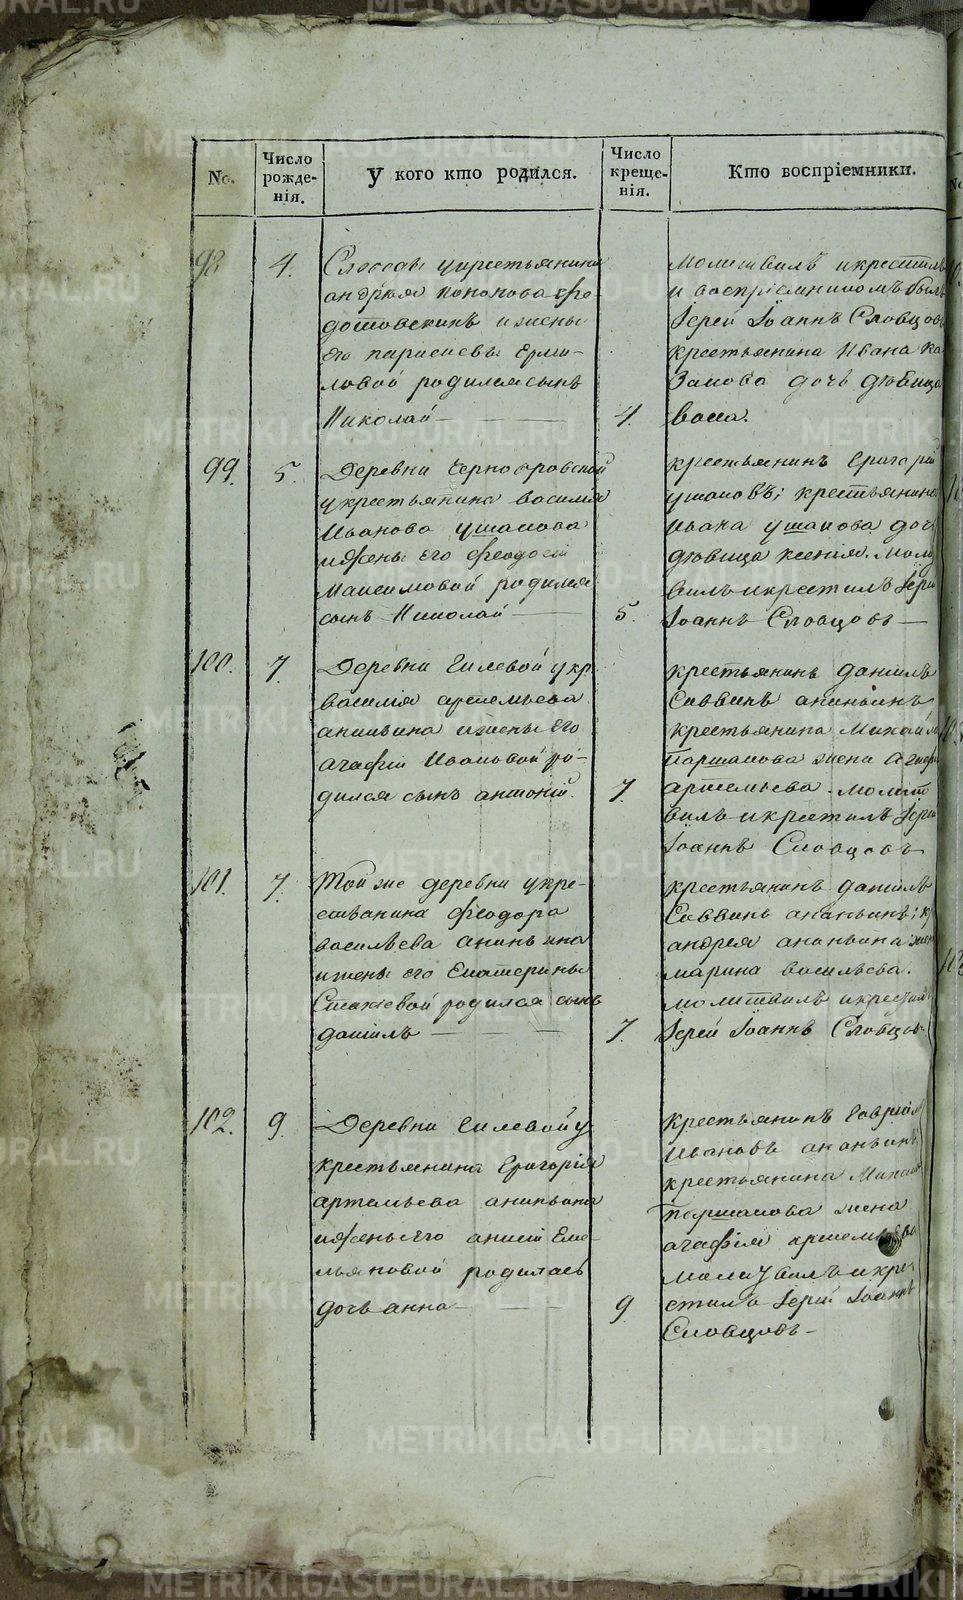 No.
Число рожде-нія.
У кого кто родился.
Число креще-нія.
Кто воспріемники.
98
4.
Слободы укрестьянина
андрея Кононова Фе-
дотовскихъ ижены
его парасковьи Ерми-
ловой родился сынъ
Николай
4.
Молитвилъ икрестилъ
и воспріемникомъ былъ
Іерей Іоаннъ Словцовъ
крестьянина Ивана Ка-
закова дочь дѣвица
васса.
99.
5.
Деревни Чернояровской
укрестьянина василія
Иванова ушакова
ижены его Феодосіи
Максимовой родился
сынъ Николай
5.
крестьянинъ Григорій
ушаковъ; крестьянина
Ивана ушакова дочь
дѣвица ксенія. Молит
вилъ икрестилъ Іерей
Іоаннъ Словцовъ
100.
7.
Деревни Гилевой укр.
василія артемьева
ананьина ижены его
агафіи Ивановой ро-
дился сынъ антоній.
7.
крестьянинъ даніилъ
Саввинъ ананьинъ
крестьянина Михайла
Паршакова жена Агафья
артемьева. Молит
вилъ икрестилъ Іерей
Іоаннъ Словцовъ
101.
7.
Той же деревни укре-
стьянина Феодора
васильева ананьина
ижены его Екатерины
родился сынъ
даніилъ
7.
крестьянинъ даніилъ
Саввинъ ананьинъ; кр
андрея ананьина жен
марина васильева.
молитвилъ икрестилъ
Іерей Іоаннъ Словцовъ
102.
9.
Деревни Гилевой у
крестьянина Григорія
артемьева ананьина
ижены его Еме-
льяновой родилась
дочь анна
9
крестьянинъ Гавріилъ
Ивановъ ананьинъ
крестьянина Михаил
Паршакова жена
агафія артемьева
молитвилъ икре-
стилъ Іерей Іоаннъ
Словцовъ
METRIKI.GASO-URAL.RU